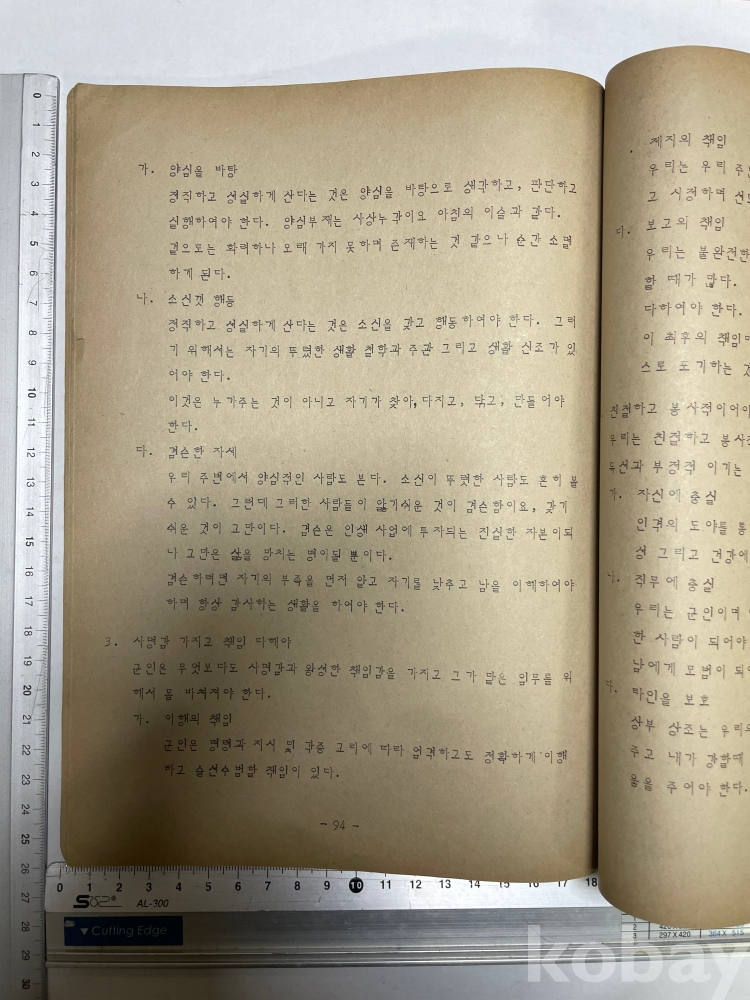 가. 양심을 바탕
정직하고 성실하게 산다는 것은 양심을 바탕으로 생각하고, 판단하고
실행하여야 한다. 양심부재는 사상누각이요 아침의 이슬과 같다.
겉으로는 화려하나 오래 가지 못하며 존재하는 것 같으나 순간 소멸
하게 된다.
나. 소신껏 행동
정직하고 성실하게 산다는 것은 소신을 갖고 행동하여야 한다. 그러
기 위해서는 자기의 뚜렷한 생활 철학과 주관 그리고 생활 신조가 있
어야 한다.
이것은 누가주는 것이 아니고 자기가 찾아, 다지고, 닦고, 만들어야
한다.
다. 겸손한 자세
우리 주변에서 양심적인 사람도 본다. 소신이 뚜렷한 사람도 흔히 볼
수 있다. 그런데 그러한 사람들이 잃기쉬운 것이 겸손함이요, 갖기
쉬운 것이 고만이다. 겸손은 인생 사업에 투자되는 진실한 자본이되
나 고만은 삶을 망치는 병이될 뿐이다.
겸손하려면 자기의 부족을 먼저 알고 자기를 낮추고 남을 이해하여야
하며 항상 감사하는 생활을 하여야 한다.
3. 사명감 가지고 책임 다해야
군인은 무엇보다도 사명감과 왕성한 책임감을 가지고 그가 맡은 임무를 위
해서 몸 바쳐져야 한다.
가. 이행의 책임
군인은 명령과 지시 및 각종 그리에 따라 엄격하고도 정확하게 이행
하고 솔선수범할 책임이 있다.
- 94 -
제지의 책임
우리는 우리 주변
고 시정하며 선도
다. 보고의 책임
우리는 불완전한
할 때가 많다.
다하여야 한다.
이 최후의 책임마
스로 포기하는 것
친절하고 봉사적이어야
우리는 친절하고 봉사적
독선과 부정적 이기는
가. 자신에 충실
인격의 도야를 통
성 그리고 건강에
나. 직무에 충실
우리는 군인이며
한 사람이 되어야
남에게 모범이 되어
다. 타인을 보호
상부 상조는 우리의
주고 내가 강할때
움을 주어야 한다.
0 1 2 3 4 5 6 7 8 9 10 11 12 13 14 15 16 17 18 19 20 21 22 23 24 25 26 27 28 29 30
0 1 2 3 4 5 6 7 8 9 10 11 12 13 14 15 16 17 18
AL-300
Cutting Edge
3 297X420 364X 515
kobay